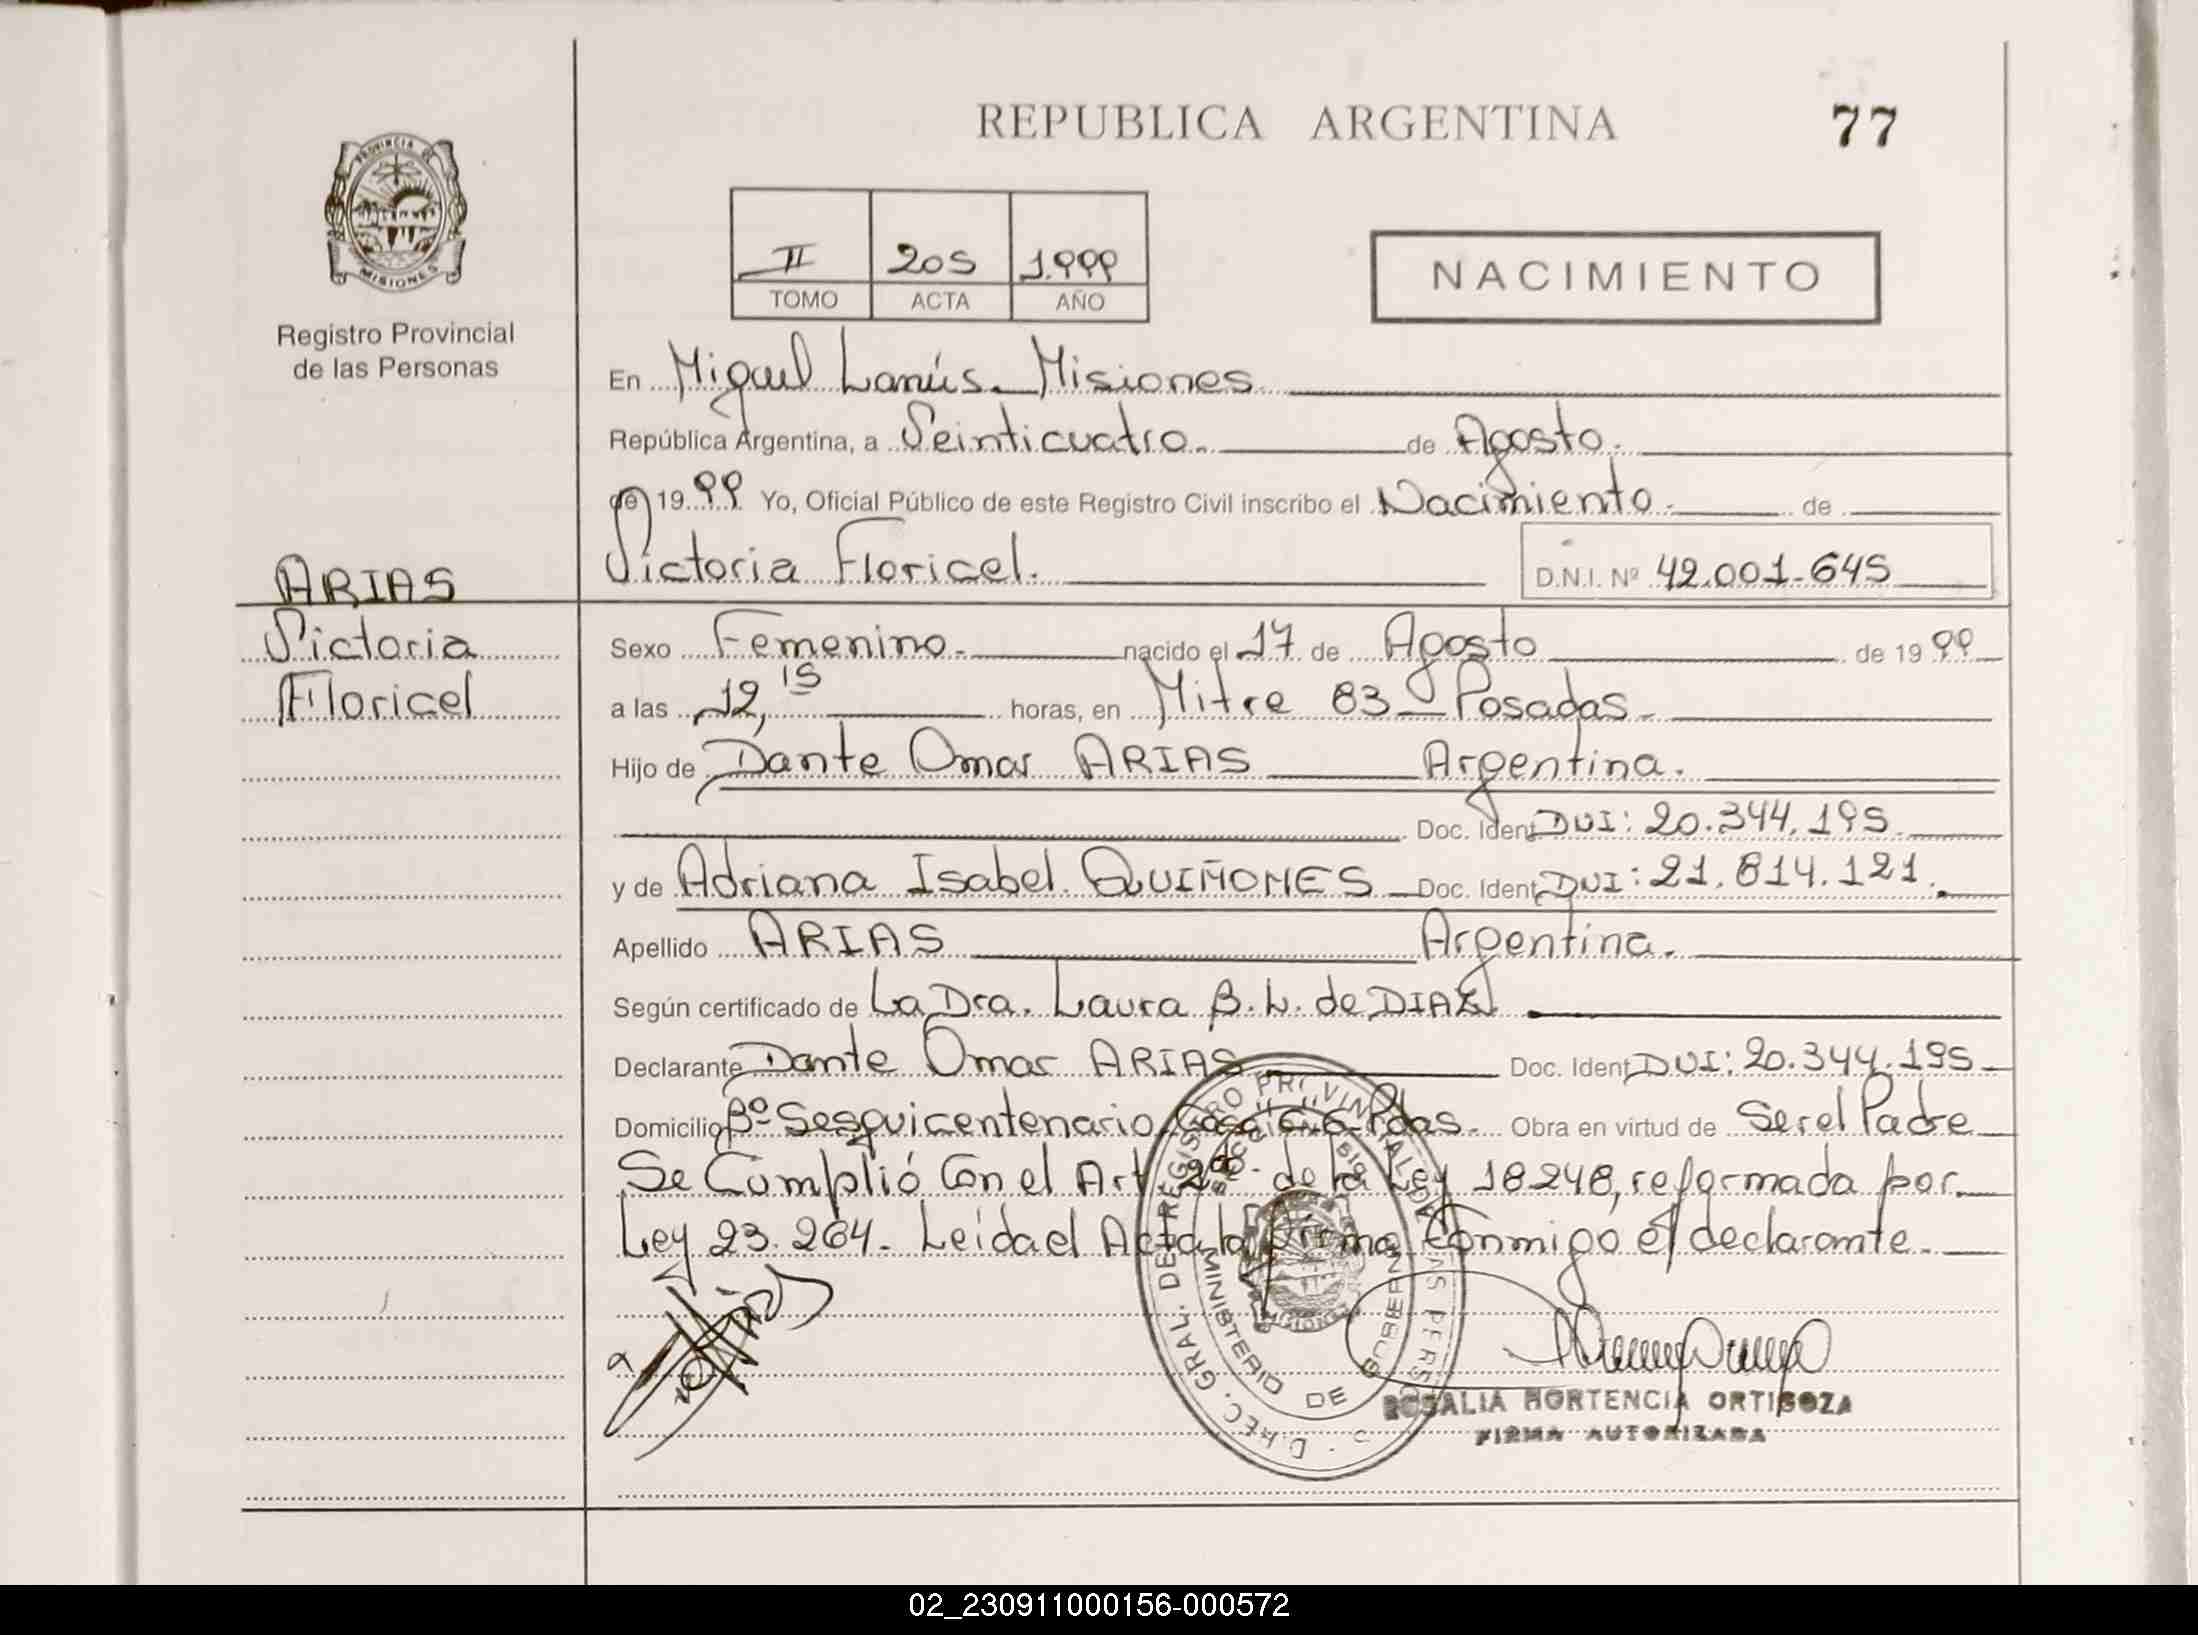 REPUBLICA ARGENTINA 77
PROVINCIA DE
MISIONES
Registro Provincial
de las Personas
II 205 1.999
TOMO ACTA AÑO
NACIMIENTO
En Miguel Lanús - Misiones
República Argentina, a Veinticuatro. de Agosto.
de 1999 Yo, Oficial Público de este Registro Civil inscribo el Nacimiento. de
Victoria Floricel. D.N.I. Nº 42.001.645
ARIAS
Victoria
Floricel
Sexo Femenino. nacido el 17 de Agosto de 1999
a las 12,15 horas, en Mitre 83 - Posadas.
Hijo de Dante Omar ARIAS Argentina.
Doc. Ident. DUI: 20.344.195
y de Adriana Isabel QUIÑONES Doc. Ident. DUI: 21.814.121.
Apellido ARIAS Argentina.
Según certificado de La Dra. Laura B. L. de DIAZ
Declarante Dante Omar ARIAS Doc. Ident. DUI: 20.344.195
Domicilio Bº Sesquicentenario Casa "C" 6 Pdas. Obra en virtud de Ser el Padre
Se Cumplió Con el Art 2do. de la Ley 18248, reformada por
Ley 23.264. Leída el Acta la firma Conmigo el declarante.
DIREC. GRAL. DE REGISTRO PROVINCIAL DE LAS PERSONAS
MINISTERIO DE GOBIERNO
ROSALIA HORTENCIA ORTIGOZA
FIRMA AUTORIZADA
02_230911000156-000572